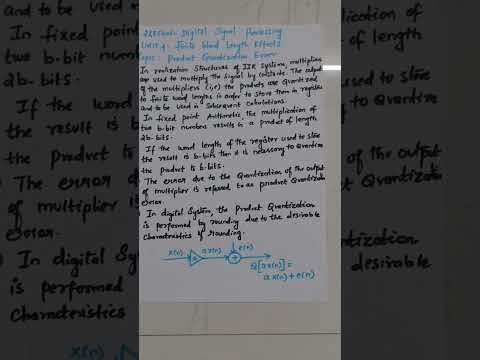 Digital Signal Processing
Unit 4: Finite Word Length Effects
Topic: Product Quantization Error
In realization Structures of IIR Systems, multipliers
are used to multiply the signal by constants. The output
of the multipliers (i,e) the products are Quantized
to finite word lengths in order to store them in registers
and to be used in subsequent calculations.
In fixed point Arithmetic, the multiplication of
two b-bit numbers results in a product of length
2b-bits.
If the word length of the register used to store
the result is b-bits then it is necessary to Quantize
the product to b-bits.
The error due to the Quantization of the output
of multiplier is referred to as product Quantization
error.
In digital System, the Product Quantization
is performed by rounding due to the desirable
Characteristics of rounding.
x(n) a ax(n) + e(n)
Q[ax(n)] =
ax(n) + e(n)